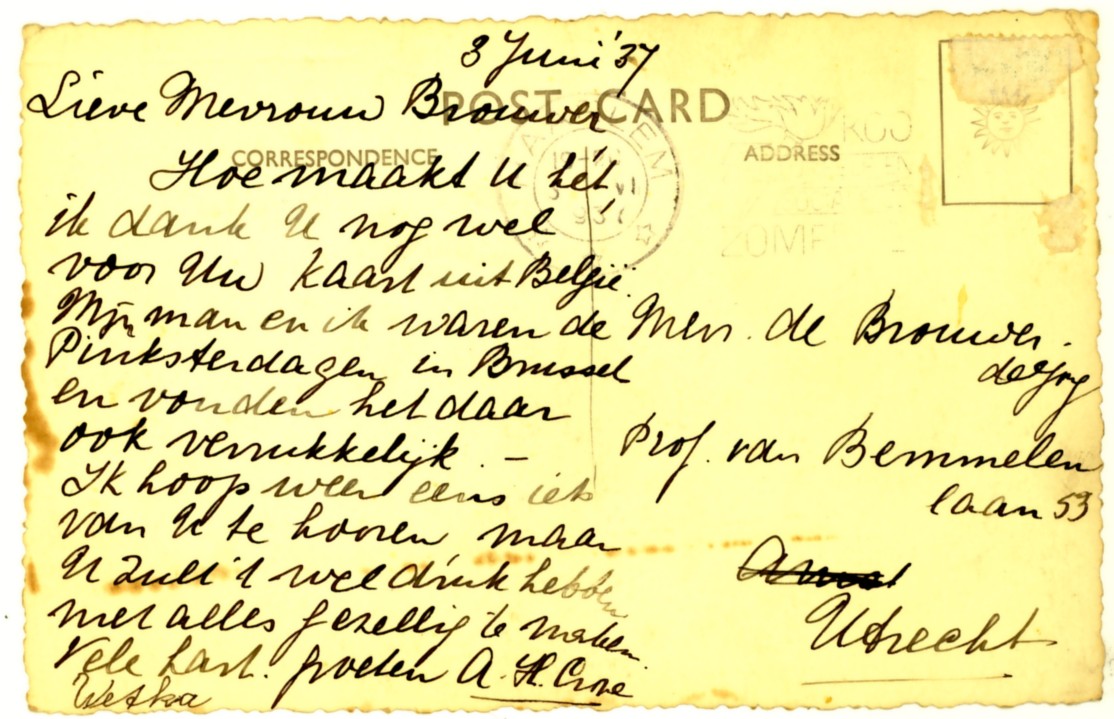 3 Juni '37
Lieve Mevrouw Brouwer
POST CARD
CORRESPONDENCE
ADDRESS
Hoe maakt U het
ik dank U nog wel
voor Uw kaart uit België.
Mijn man en ik waren de
Pinksterdagen in Brussel
en vonden het daar
ook verrukkelijk. –
Ik hoop weer eens iets
van U te hooren maar
U zult 't wel druk hebben
met alles gezellig te maken.
Vele hart. groeten A. H.
Mevr. de Brouwer.
Prof. van Bemmelen
laan 53
Utrecht
ZOME